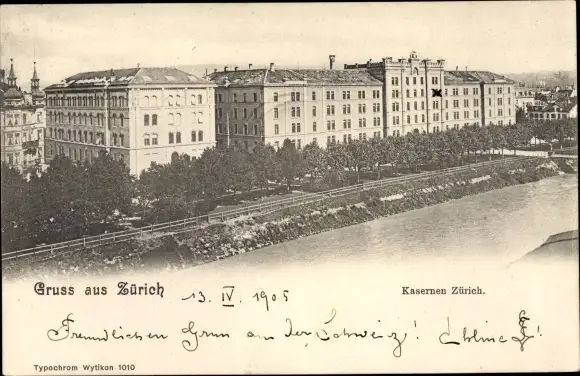 Gruss aus Zürich
13. IV. 1905
Kasernen Zürich.
Freundlichen Gruss aus der Schweiz!
Typochrom Wytikon 1010